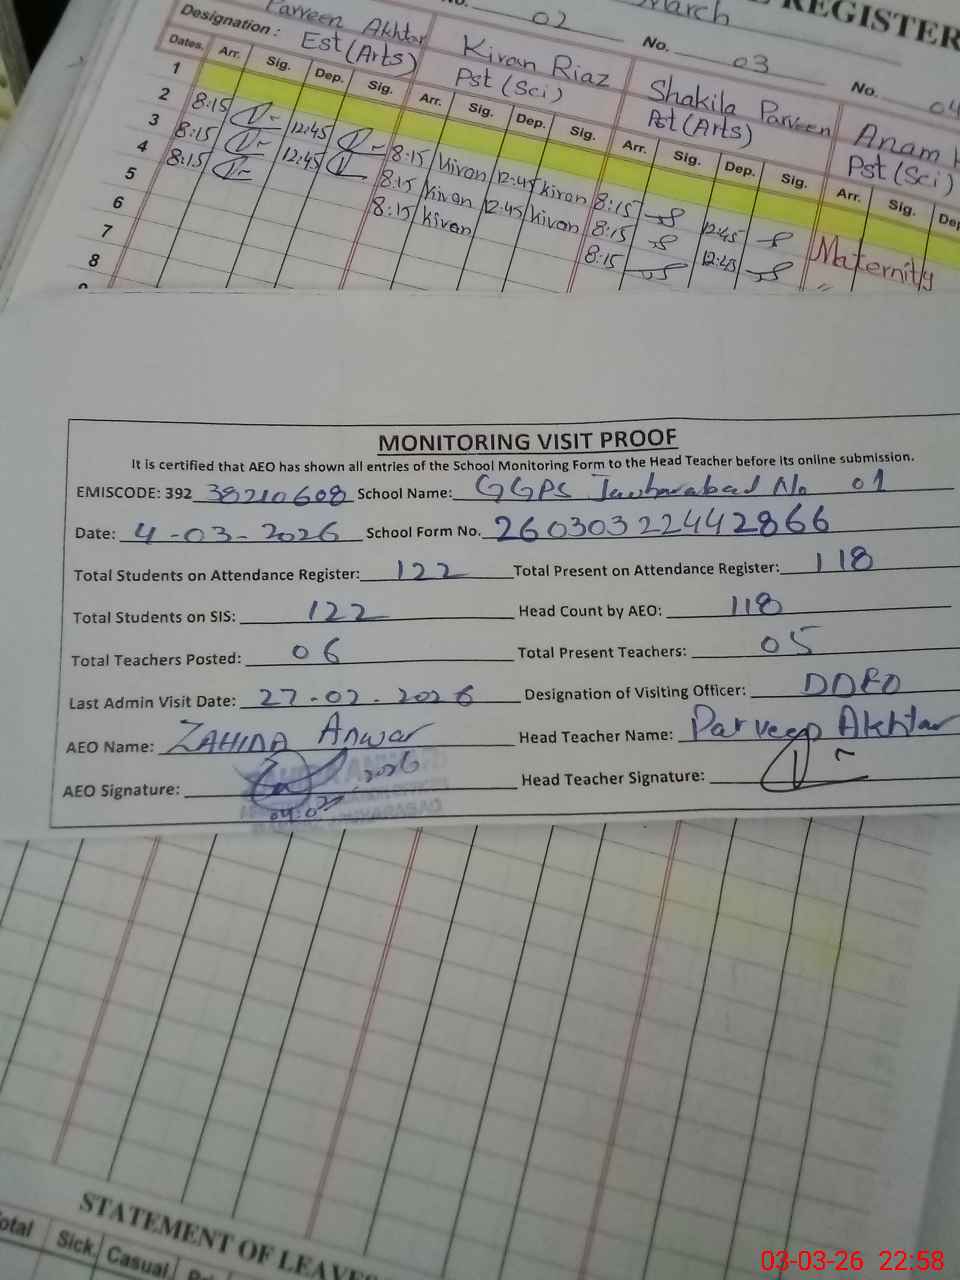 REGISTER
March
No. 02
No. 03
No. 04
Designation : Parveen Akhtar Est (Arts)
Kiran Riaz Pst (Sci)
Shakila Parveen Pst (Arts)
Anam
Pst (Sci)
Dates. Arr. Sig. Dep. Sig. Arr. Sig. Dep. Sig. Arr. Sig. Dep. Sig. Arr. Sig. Dep
1
2 8:15 12:45 8:15 Kiran 12:45 Kiran 8:15 12:45 Maternity
3 8:15 12:45 8:15 Kiran 12:45 Kiran 8:15 12:45 "
4 8:15 8:15 Kiran 8:15
5
6
7
8
MONITORING VISIT PROOF
It is certified that AEO has shown all entries of the School Monitoring Form to the Head Teacher before its online submission.
EMISCODE: 392 38210608 School Name: GGPS Jauharabad No 01
Date: 4-03-2026 School Form No. 26030322442866
Total Students on Attendance Register: 122 Total Present on Attendance Register: 118
Total Students on SIS: 122 Head Count by AEO: 118
Total Teachers Posted: 06 Total Present Teachers: 05
Last Admin Visit Date: 27-02-2026 Designation of Visiting Officer: DDEO
AEO Name: ZAHIDA Anwar Head Teacher Name: Parveen Akhtar
AEO Signature: Head Teacher Signature:
STATEMENT OF LEAVES
Total Sick. Casual
03-03-26 22:58